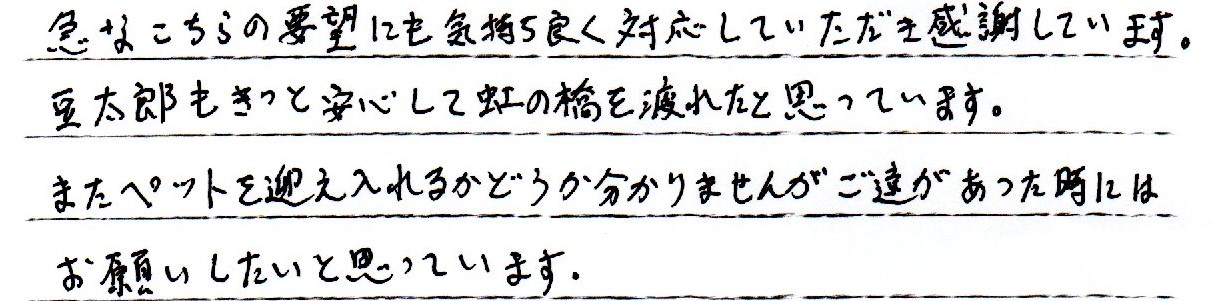 急なこちらの要望にも気持ち良く対応していただき感謝しています。
豆太郎もきっと安心して虹の橋を渡れたと思っています。
またペットを迎え入れるかどうか分かりませんがご達があった時には
お願いしたいと思っています.